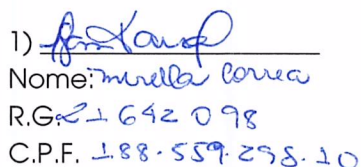 1)
Nome: Mirella Correa
R.G. 21 642 098
C.P.F. 188.559.298.10